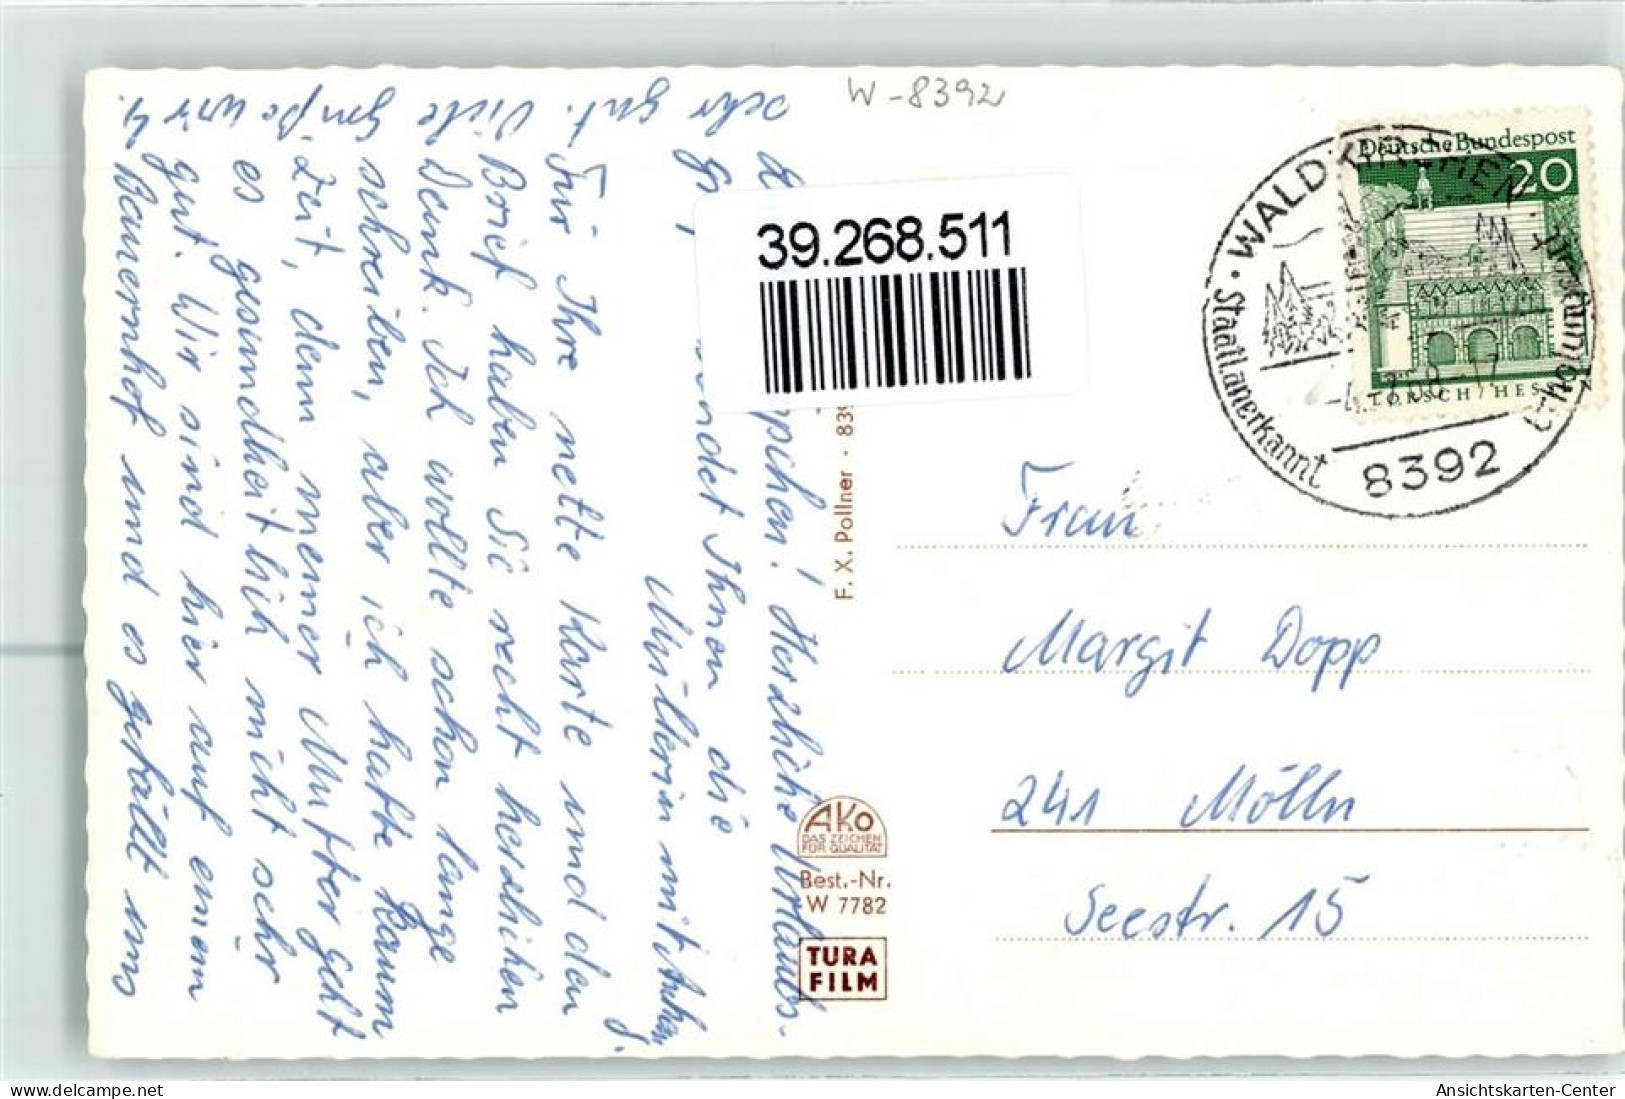 W-8392
Deutsche Bundespost
20
LORSCH/HESS
WALDKIRCHEN
Staatl. anerkannt
8392
39.268.511
Frau
Margit Dopp
241 Mölln
Seestr. 15
F. X. Pollner · 839
AKO
DAS ZEICHEN
FÜR QUALITÄT
Best.-Nr.
W 7782
TURA
FILM
Herzliche Urlaubs-
sendet Ihnen die
Müllerin mit
Für Ihre nette Karte und den
Brief haben Sie recht herzlichen
Dank. Ich wollte schon lange
schreiben, aber ich hatte kaum
Zeit, denn meiner Mutter geht
es gesundheitlich nicht sehr
gut. Wir sind hier auf einem
Bauernhof und es gefällt uns
sehr gut. Viele Grüße
www.oldthing.de
Ansichtskarten-Center